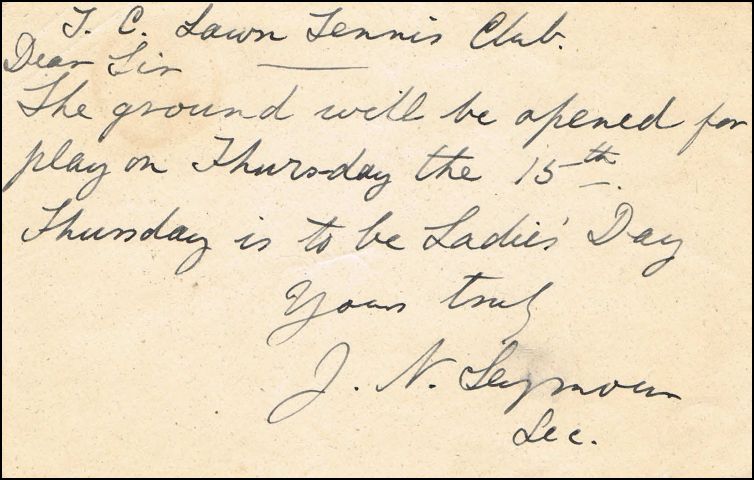 T. C. Lawn Tennis Club.
Dear Sir
The ground will be opened for
play on Thursday the 15th.
Thursday is to be Ladies' Day
Yours truly
J. N. Seymour
Sec.